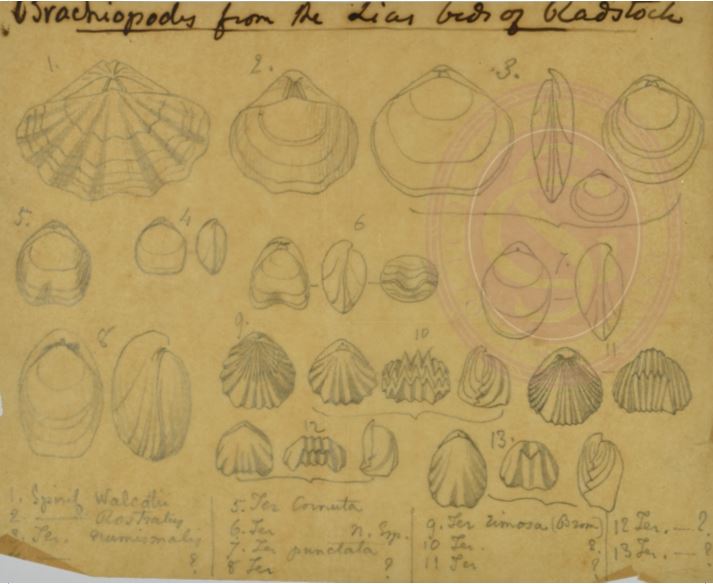 Brachiopodes from the Lias beds of Radstock
1. 2. 3.
5. 4 6 7.
8 9. 10 11
12 13.
1. Spirif Walcotii
2. —— Rostratus
3. Ter. numismalis
4. —— ?
5. Ter Cornuta
6. Ter N. Sp.
7. Ter punctata
8 Ter ?
9. Ter rimosa (Bronn)
10 Ter. ?
11 Ter ?
12 Ter. — ?
13 Ter. — ?